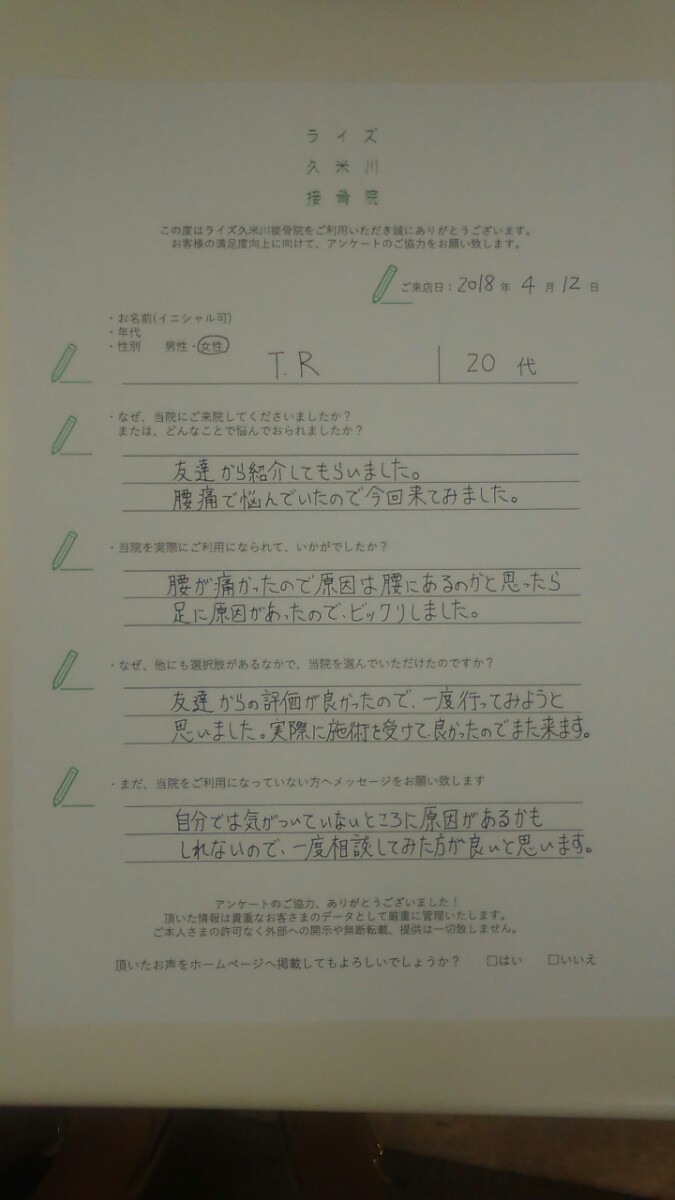 ライズ
久米川
接骨院
この度はライズ久米川接骨院をご利用いただき誠にありがとうございます。
お客様の満足度向上に向けて、アンケートのご協力をお願い致します。
ご来店日：2018年4月12日
・お名前(イニシャル可)
・年代
・性別 男性・女性
T.R 20代
・なぜ、当院にご来院してくださいましたか？
または、どんなことで悩んでおられましたか？
友達から紹介してもらいました。
腰痛で悩んでいたので今回来てみました。
・当院を実際にご利用になられて、いかがでしたか？
腰が痛かったので原因は腰にあるのかと思ったら
足に原因があったので、ビックリしました。
・なぜ、他にも選択肢があるなかで、当院を選んでいただけたのですか？
友達からの評価が良かったので、一度行ってみようと
思いました。実際に施術を受けて、良かったのでまた来ます。
・まだ、当院をご利用になっていない方へメッセージをお願い致します
自分では気がついていないところに原因があるかも
しれないので、一度相談してみた方が良いと思います。
アンケートのご協力、ありがとうございました！
頂いた情報は貴重なお客さまのデータとして厳重に管理いたします。
ご本人さまの許可なく外部への開示や無断転載、提供は一切致しません。
頂いたお声をホームページへ掲載してもよろしいでしょうか？ □はい □いいえ